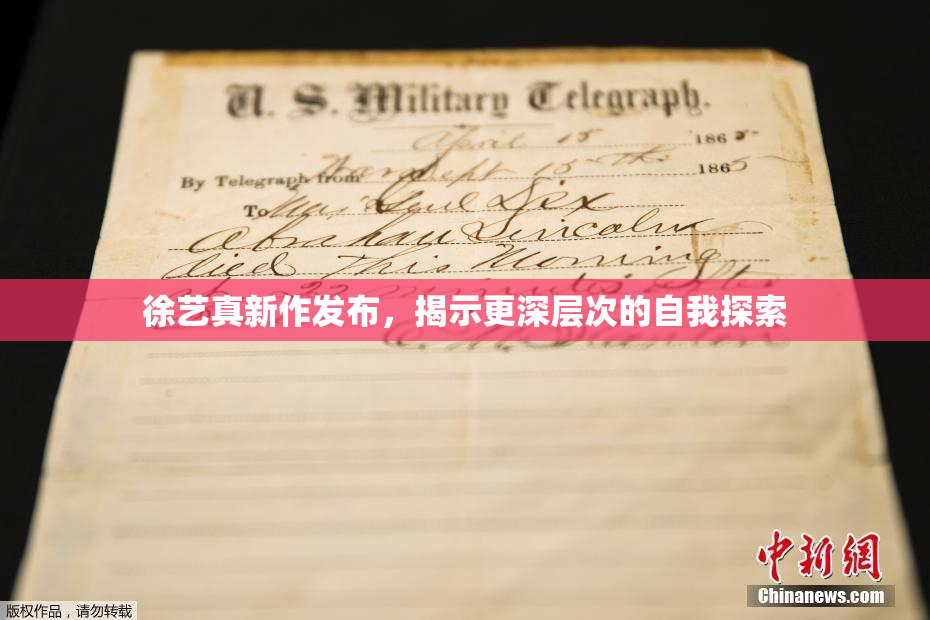 U. S. Military Telegraph.
April 15 1865
By Telegraph from War Dept 15th 1865
To Maj Genl Dix
Abraham Lincoln
died This Morning
at 22 minutes after
徐艺真新作发布，揭示更深层次的自我探索
E. M. Stanton
中新网
Chinanews.com
版权作品，请勿转载